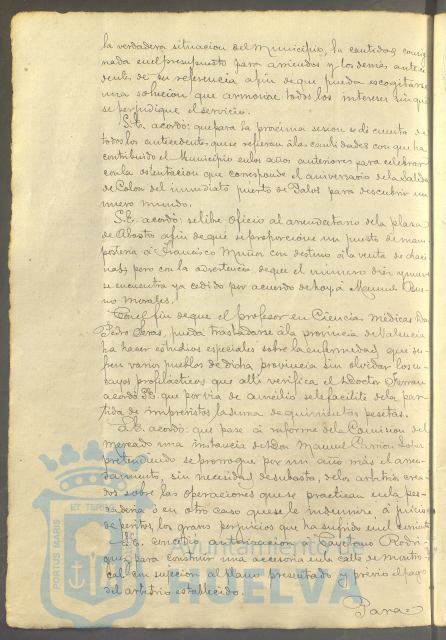 la verdadera situacion del Municipio, la cantidad consig-
nada en el presupuesto para arriendos y los demás antece-
dentes de su referencia afin de que pueda escogitarse
una solucion que armonice todos los intereses sin que
se perjudique el servicio.
S.E. acordó: que para la procsima sesion se dé cuenta de
todos los antecedentes que se refieran á las cantidades con que ha
contribuido el Municipio en los años anteriores para celebrar
con la ostentacion que corresponde el aniversario de la Salida
de Colon del inmediato puerto de Palos para descubrir un
nuevo mundo.
S.E. acordó: se libre oficio al arrendatario de la plaza
de Abastos afin de que se proporcione un puesto de mam-
posteria á Francisco Muñoz con destino á la venta de chaci-
nas; pero con la advertencia de que el número diez y nueve
se encuentra ya cedido por acuerdo de hoy á Manuel
Morales.
Con el fin de que el profesor en Ciencias Médicas Don
Pedro Seras, pueda trasladarse á la provincia de Valencia
ha hacer estudios especiales sobre la enfermedad que su-
fren varios pueblos de dicha provincia sin olvidar los en-
sayos profilácticos que alli verifica el Doctor Ferran
acordó S.E. que por via de aucilio se le facilite de la par-
tida de imprevistos la suma de quinientas pesetas.
S.E. acordó: que pase á informe de la Comision del
mercado una instancia de Don Manuel Carrion
pretendiendo se prorrogue por un año más el arren-
damiento, sin necesidad de subasta, de los arbitrios crea-
dos sobre las operaciones que se practican en la pes-
caderia ó en otro caso que se le indemnice, á juicio
de peritos, los graves perjuicios que ha sufrido en el
S.E. concedió autorizacion á Cayetano Rodri-
guez para construir una accesoria en la calle de
con sujecion al plano presentado y previo el pago
del arbitrio establecido.
Para=
PORTUS MARIS
ET TERRAE
Ayuntamiento de
HUELVA